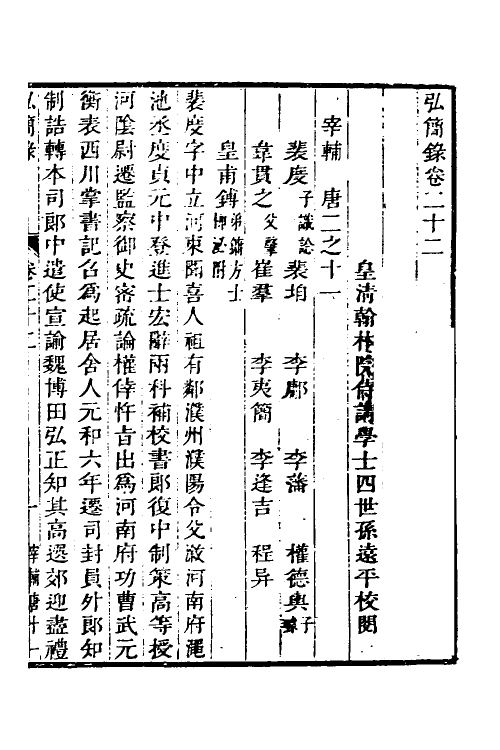 弘簡錄卷二十二
皇清翰林院侍講學士四世孫遠平校閱
宰輔　唐二之十一
裴度子識諗　裴垍　李鄘　李藩　權德輿子璩
韋貫之父肇　崔羣　李夷簡　李逢吉　程异
皇甫鎛弟鏞方士柳泌附
裴度字中立河東聞喜人祖有鄰濮州濮陽令父漵河南府澠
池丞度貞元中登進士宏辭兩科補校書郎復中制策高等授
河陰尉遷監察御史密疏論權倖忤旨出爲河南府功曹武元
衡表西川掌書記召爲起居舍人元和六年遷司封員外郎知
制誥轉本司郎中遣使宣諭魏博田弘正知其高選郊迎盡禮
弘簡錄　卷二十二　一　宰輔唐廿一